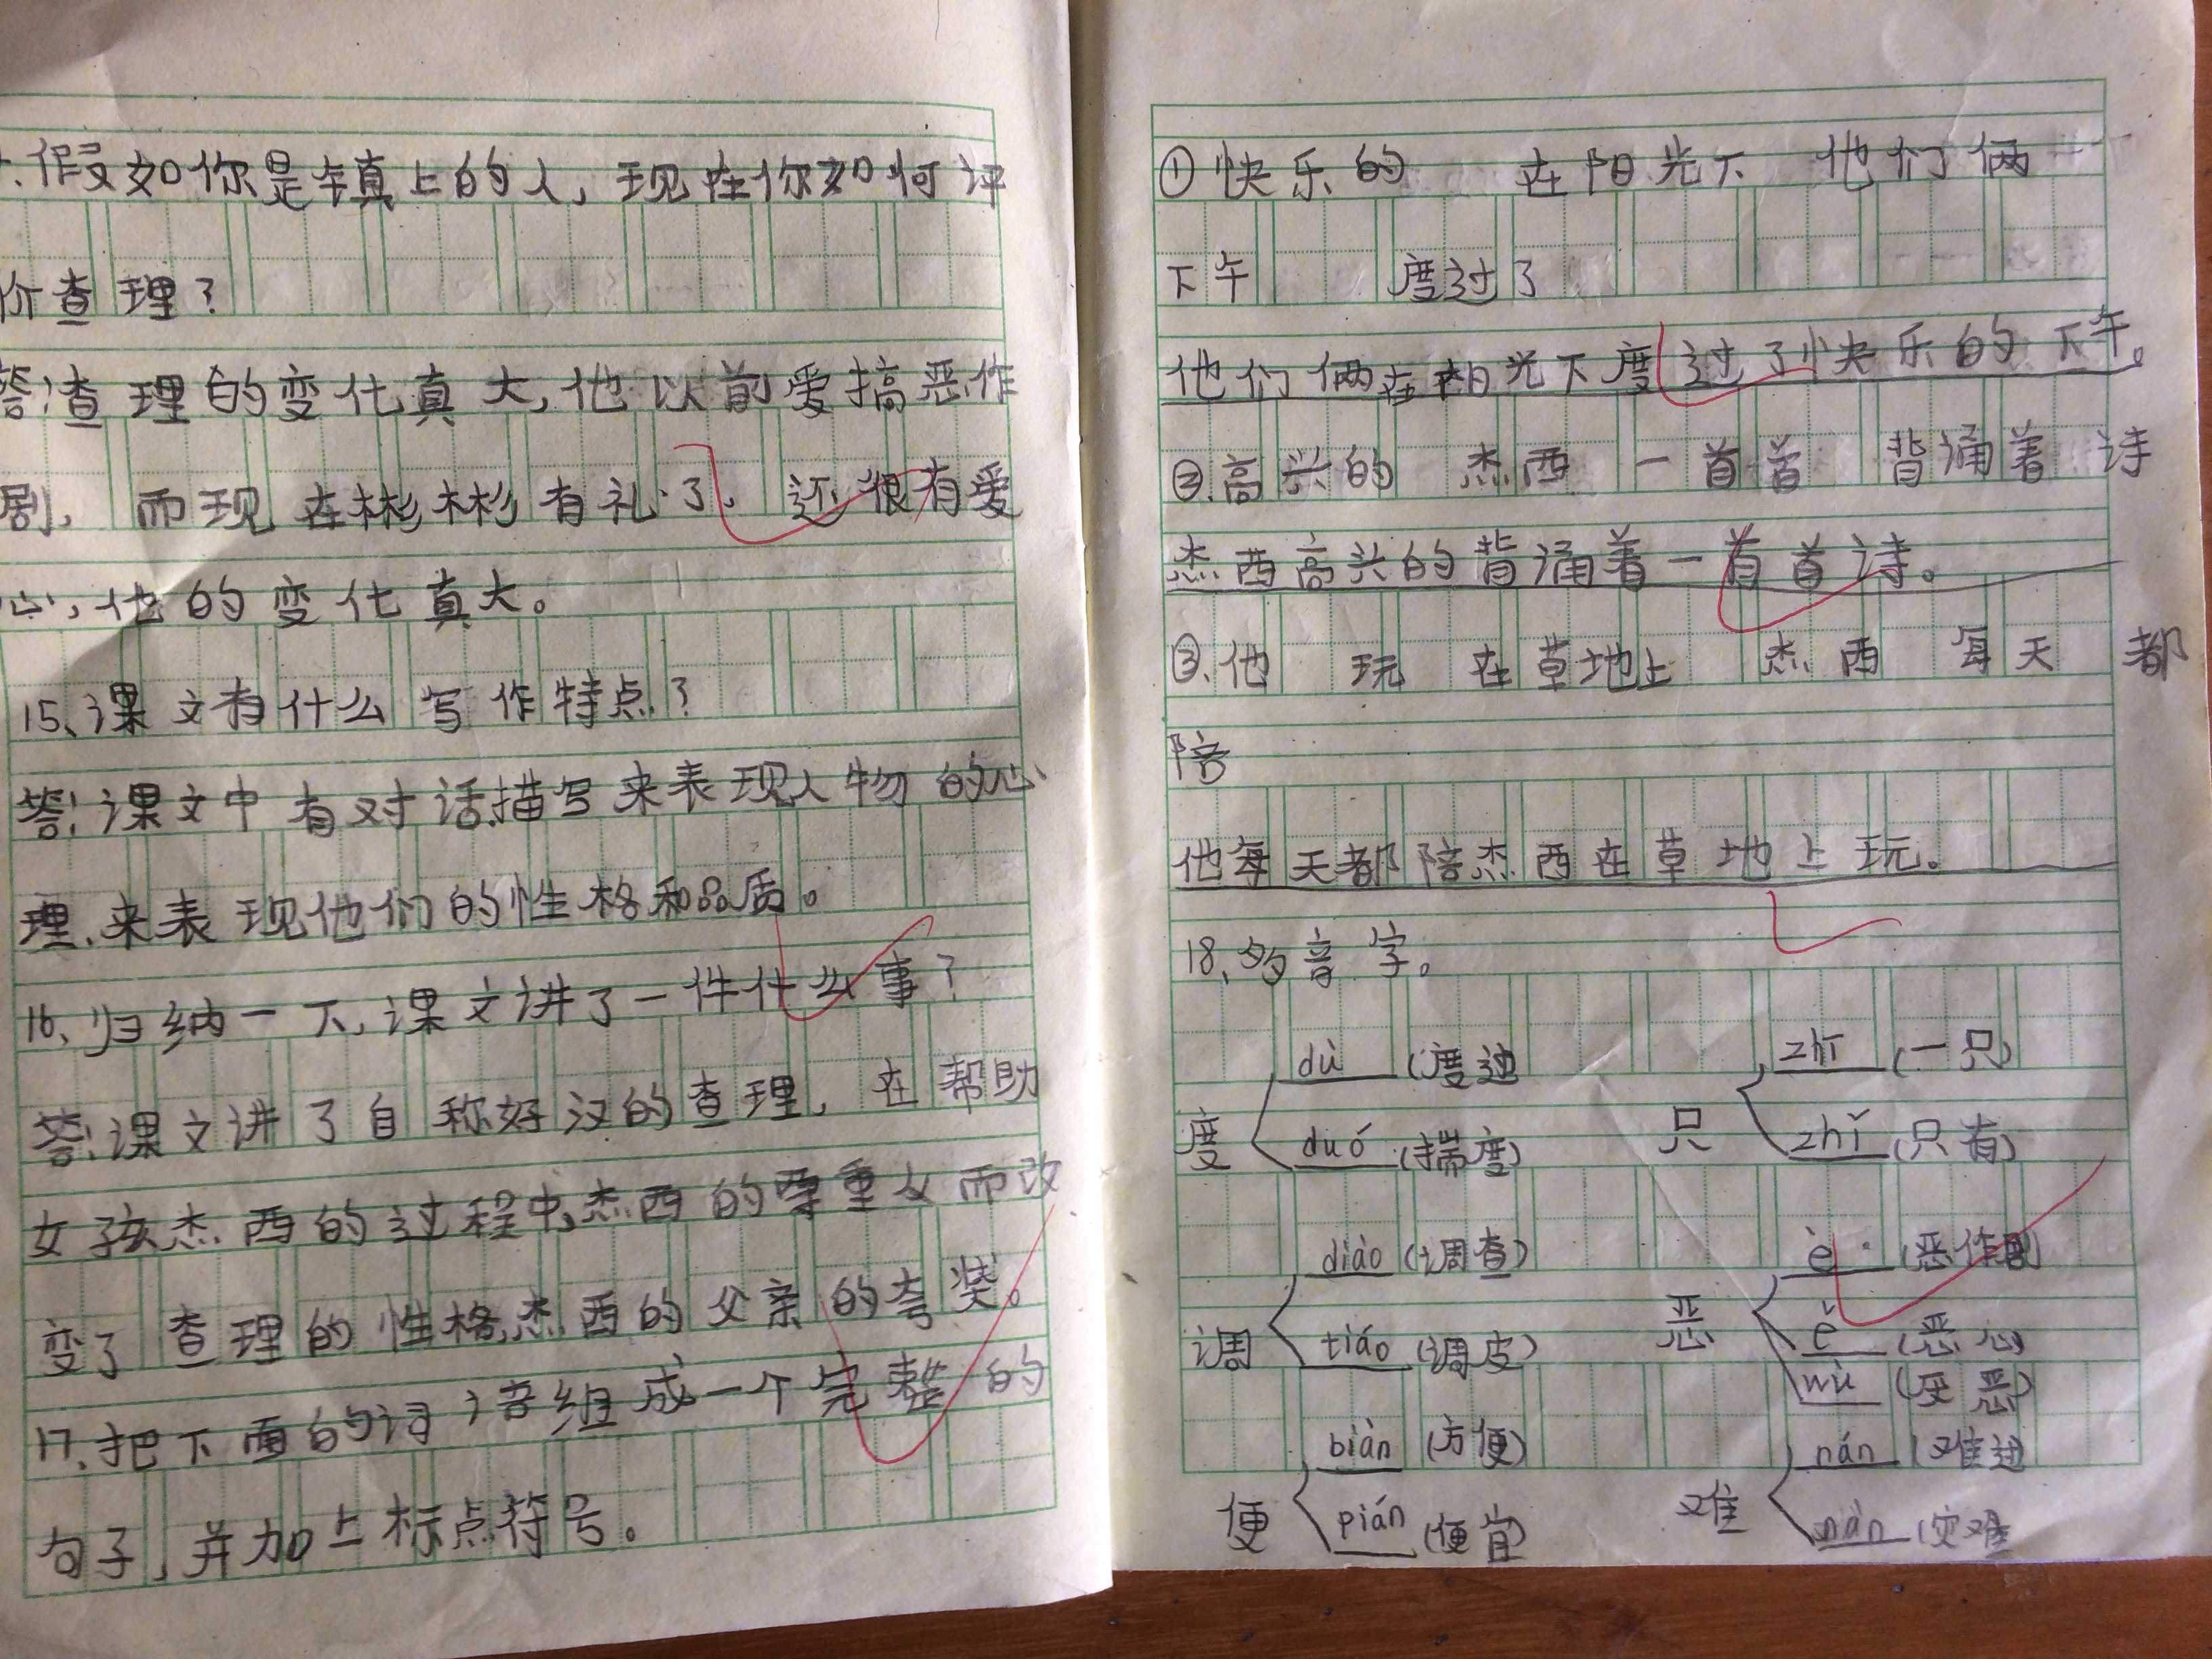 .假如你是镇上的人,现在你如何评
价查理?
答:查理的变化真大,他以前爱搞恶作
剧,而现在彬彬有礼了,还很有爱
心,他的变化真大。
15、课文有什么写作特点?
答:课文中有对话描写来表现人物的心
理.来表现他们的性格和品质。
16、归纳一下,课文讲了一件什么事?
答:课文讲了自称好汉的查理,在帮助
女孩杰西的过程中,杰西的尊重 而改
变了查理的性格,杰西的父亲的夸奖。
17、把下面的词语组成一个完整的
句子,并加上标点符号。
①快乐的 在阳光下 他们俩
下午 度过了
他们俩在阳光下度过了快乐的下午。
②.高兴的 杰西 一首首 背诵着 诗
杰西高兴的背诵着一首首诗。
③.他 玩 在草地上 杰西 每天 都
陪
他每天都陪杰西在草地上玩。
18、多音字。
dù (度过 zhī (一只)
度 duó (揣度) 只 zhǐ (只有)
diào (调查) è (恶作剧
调 tiáo (调皮) 恶 ě (恶心)
wù (厌恶)
biàn (方便) nán (难过
便 pián (便宜 难 nàn (灾难